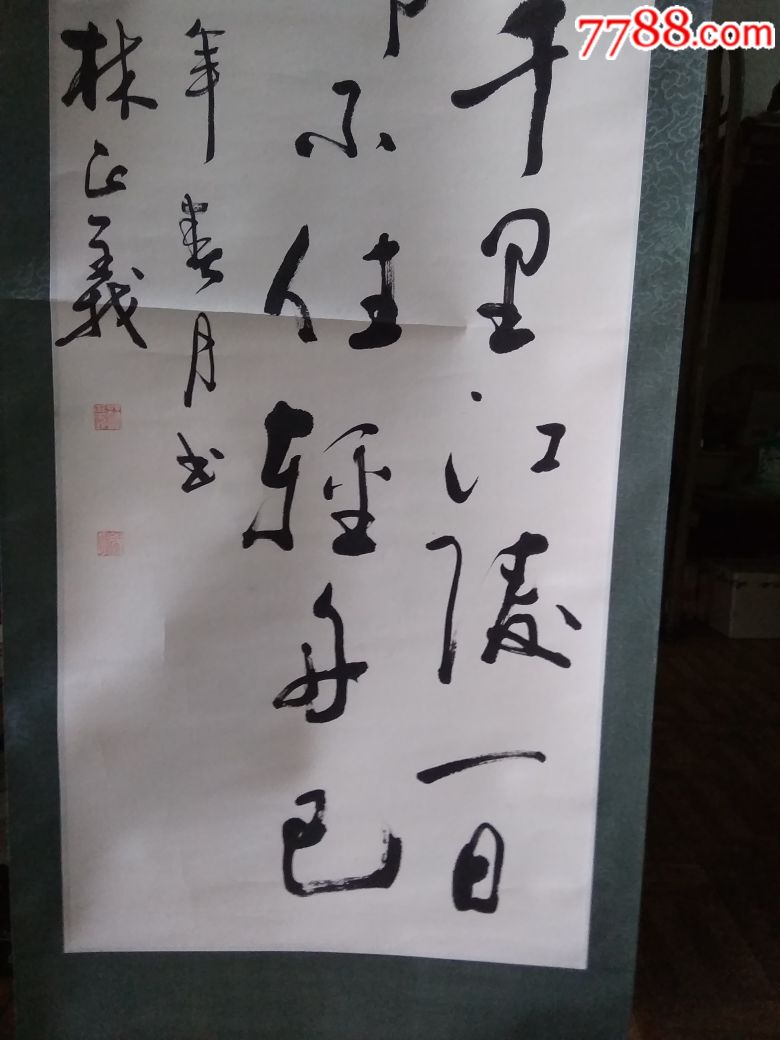 7788.com
千里江陵一日
不住輕舟已
年春月书
林正義